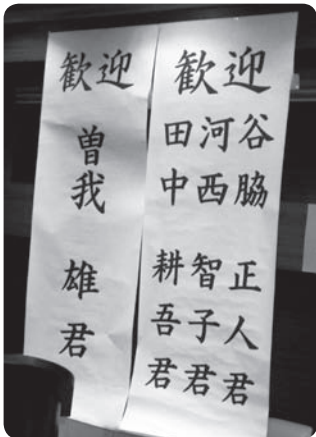 歓迎
谷脇 正人君
河西 智子君
田中 耕吾君
歓迎
曽我 雄君